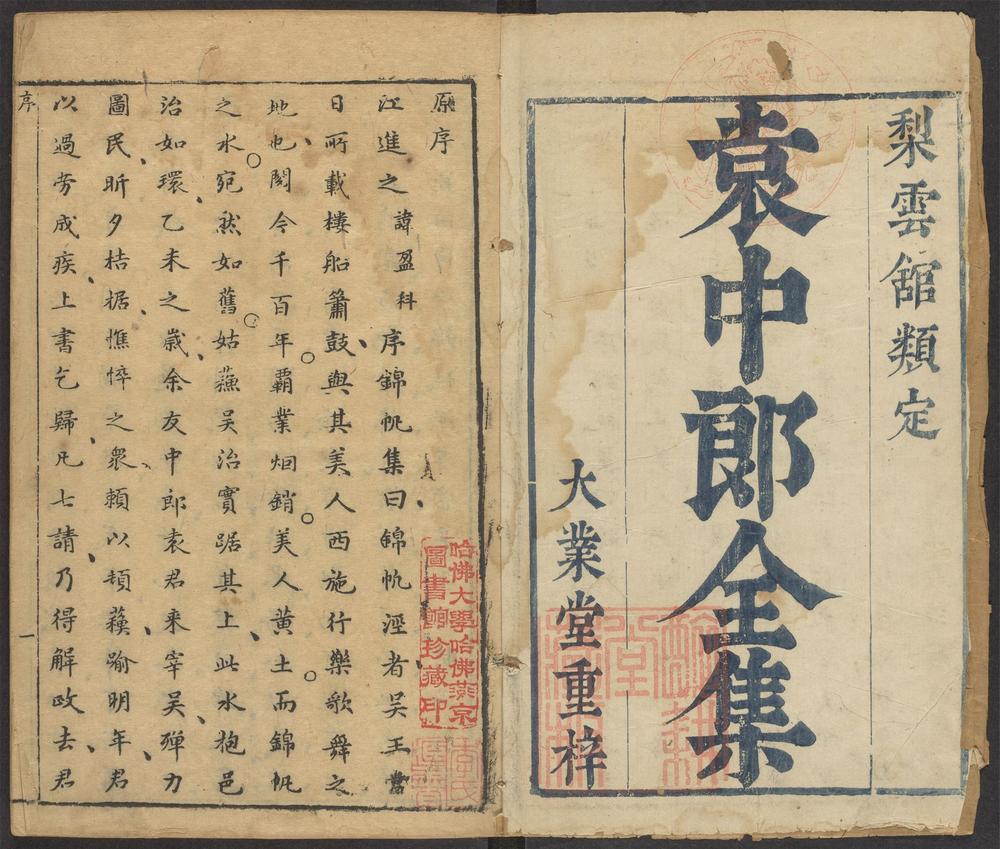 梨雲館類定
袁中郎全集
大業堂重梓
原序
江進之諱盈科序錦帆集曰錦帆涇者吳王當
日所載樓船簫鼓與其美人西施行樂歌舞之
地也閱今千百年霸業烟銷美人黃土而錦帆
之水宛然如舊姑蘓吴治實踞其上此水抱邑
治如環乙未之歲余友中郎袁君来宰吴殫力
圖民昕夕拮据憔悴之衆賴以頓蘓踰明年君
以過劳成疾上書乞歸凡七請乃得解政去君
序
一
哈佛大學哈佛燕京
圖書館珍藏印